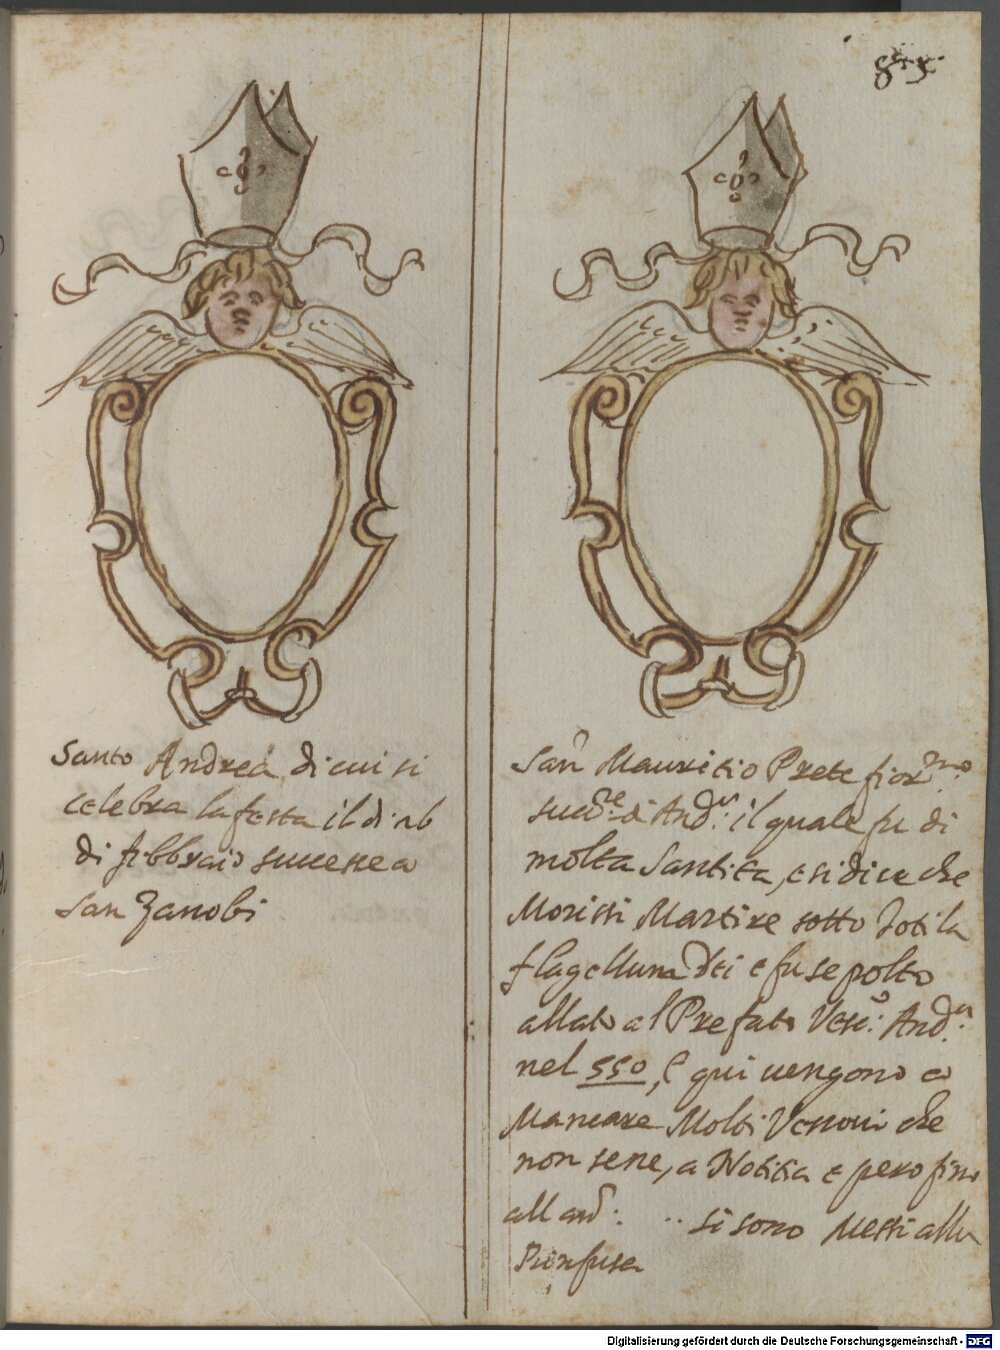 Santo Andrea di cui si
celebra la festa il di 26
di febbraio successe a
San Zanobi
San Mauritio Prete fior.no
succ.re di And.a il quale fu di
molta Santita, e si dice che
Morissi Martire sotto Totila
flagellum Dei e fu sepolto
allato al Prefato Vesc.o And.a
nel 550, E qui vengono a
Mancare Molti Vescovi che
non se ne, a Notitia e pero fino
all : .. si sono Messi alla